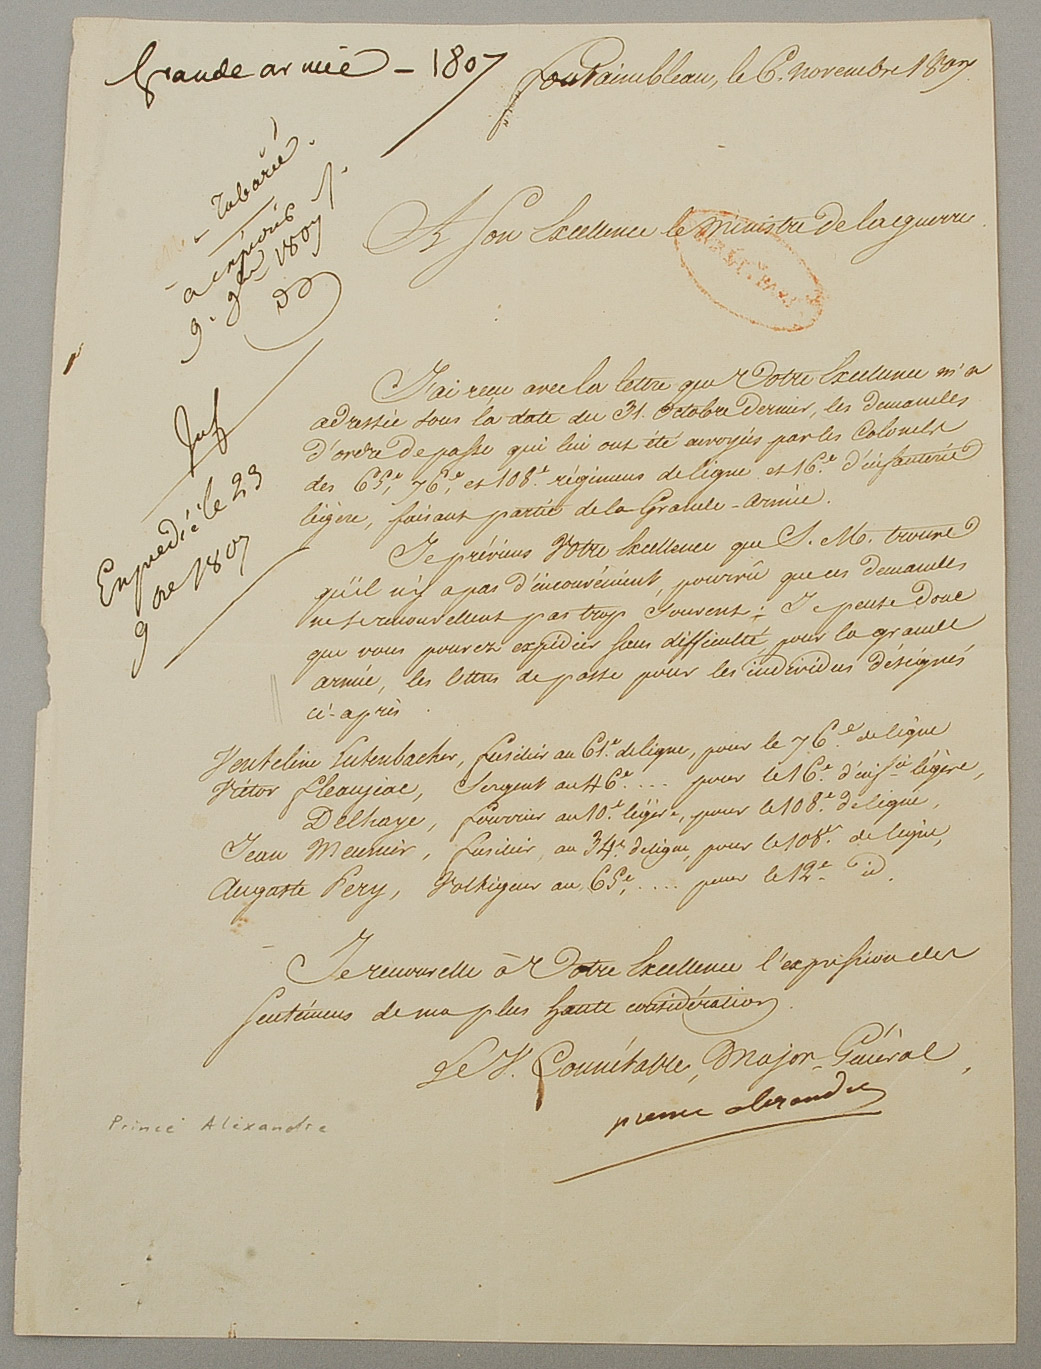 Grande armée – 1807
Fontainebleau, le 6. novembre 1807
Tabarié.
a expédié
9. gbre 1807
A Son Excellence le Ministre de la guerre.
J'ai reçu avec la lettre que Votre Excellence m'a
adressée sous la date du 31. octobre dernier, les demandes
d'ordre de passe qui lui ont été envoyés par les Colonels
des 65.e, 76.e, et 108.e régimens de ligne et 16.e d'infanterie
légère, faisant partie de la Grande-Armée.
Je préviens Votre Excellence que S. M. trouve
qu'il n'y a pas d'inconvénient, pourvû que ces demandes
ne se renouvellent pas trop souvent; Je pense donc
que vous pouvez expédier sans difficulté, pour la grande
armée, les lettres de passe pour les individus désignés
ci-après.
Expedié le 23
9bre 1807
Venteline Lutenbacher, fusilier au 61.e de ligne, pour le 76.e de ligne
Victor Fleaujac, Sergent au 46.e .... pour le 16.e d'inf.rie légère,
Delhaye, fourrier au 10.e légère, pour le 108.e de ligne,
Jean Meunier, fusilier, au 34.e de ligne, pour le 108.e de ligne,
Auguste Pery, Voltigeur au 65.e, .... pour le 12.e id.
Je renouvelle à Votre Excellence l'expression des
sentimens de ma plus haute considération.
Le V. Connétable, Major-Général,
prince alexandre
Prince Alexandre